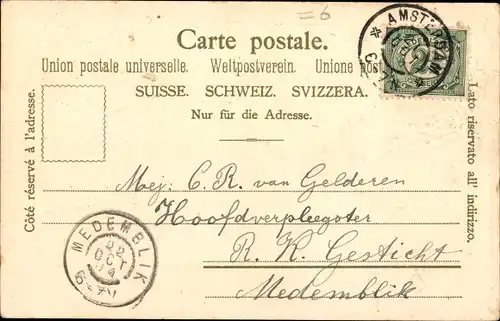 =6
Carte postale.
AMSTERDAM
Union postale universelle. Weltpostverein. Unione post
SUISSE. SCHWEIZ. SVIZZERA.
Nur für die Adresse.
Côté réservé à l'adresse.
Lato riservato all' indirizzo.
Mej: C. R. van Gelderen
Hoofdverpleegster
R. K. Gesticht
Medemblik
MEDEMBLIK
OCT